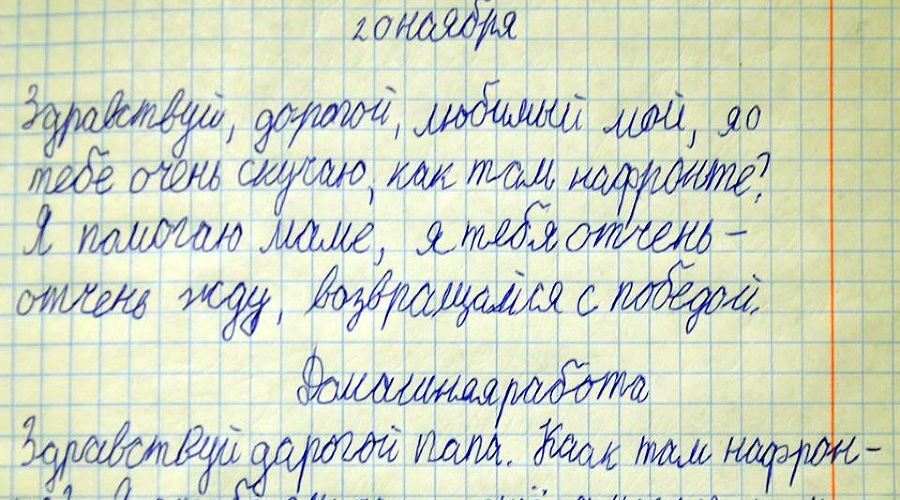 20 наября
Здравствуй, дорогой, любимый мой, я о
тебе очень скучаю, как там нафронте?
Я помогаю маме, я тебя отчень-
отчень жду, возвращайся с победой.
Домашняяработа
Здравствуй дарогой папа. Каак там нафрон-